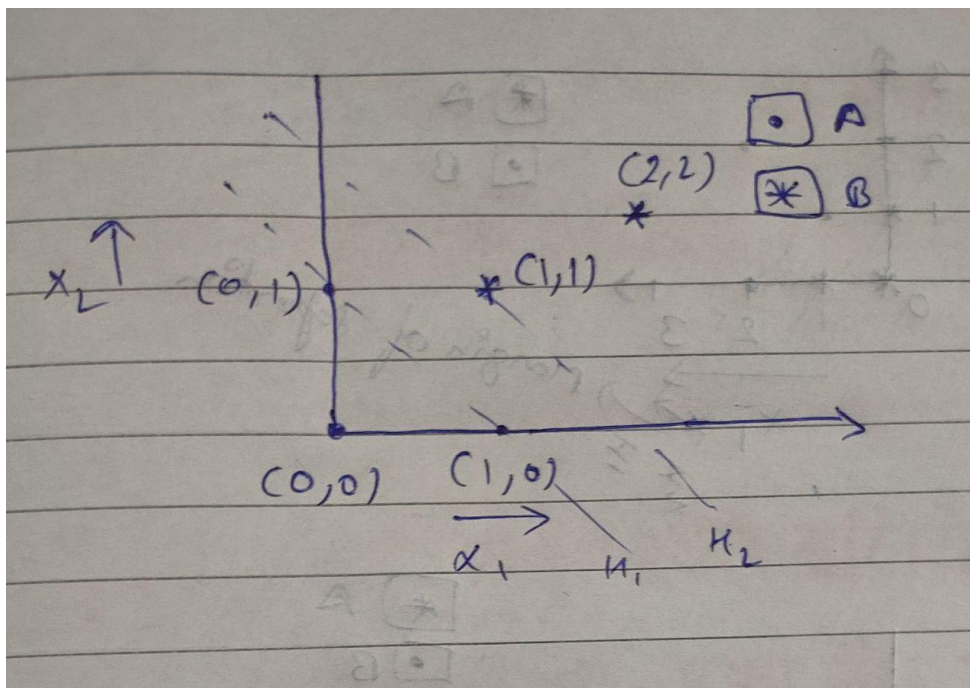 A
(2,2)
* B
X₂
(0,1)
* (1,1)
*
(0,0)
(1,0)
α₁
H₁
H₂